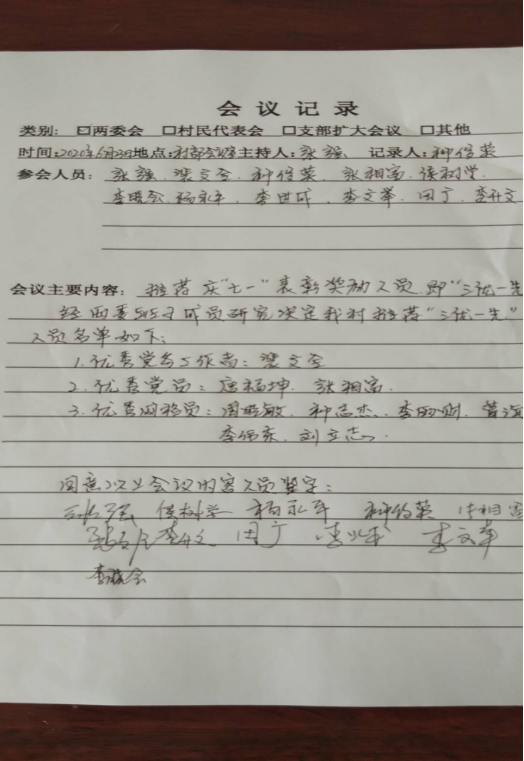 会议记录
类别: ☑两委会 □村民代表会 □支部扩大会议 □其他
时间:2020年6月 日地点:村部会议室主持人:张强、 记录人:种传荣
参会人员: 张强、梁文全、种传荣、张相富、侯树学
李晓会、杨永平、李世成、李文华、田丁、李升文
会议主要内容: 推荐庆“七一”表彰奖励人员即“三优一先”
经两委 成员研究决定我村推荐“三优一先”
人员名单如下:
1.优秀党务工作者:梁文全
2.优秀党员: 杨坤、张相富
3.优秀网格员:周晓敏、种志杰、李 财、
李伟东、刘立志
同意以上会议内容人员签字:
张强 侯树学 杨永平 种传荣 张相富
李升文 田丁 李世成 李文华
李晓会